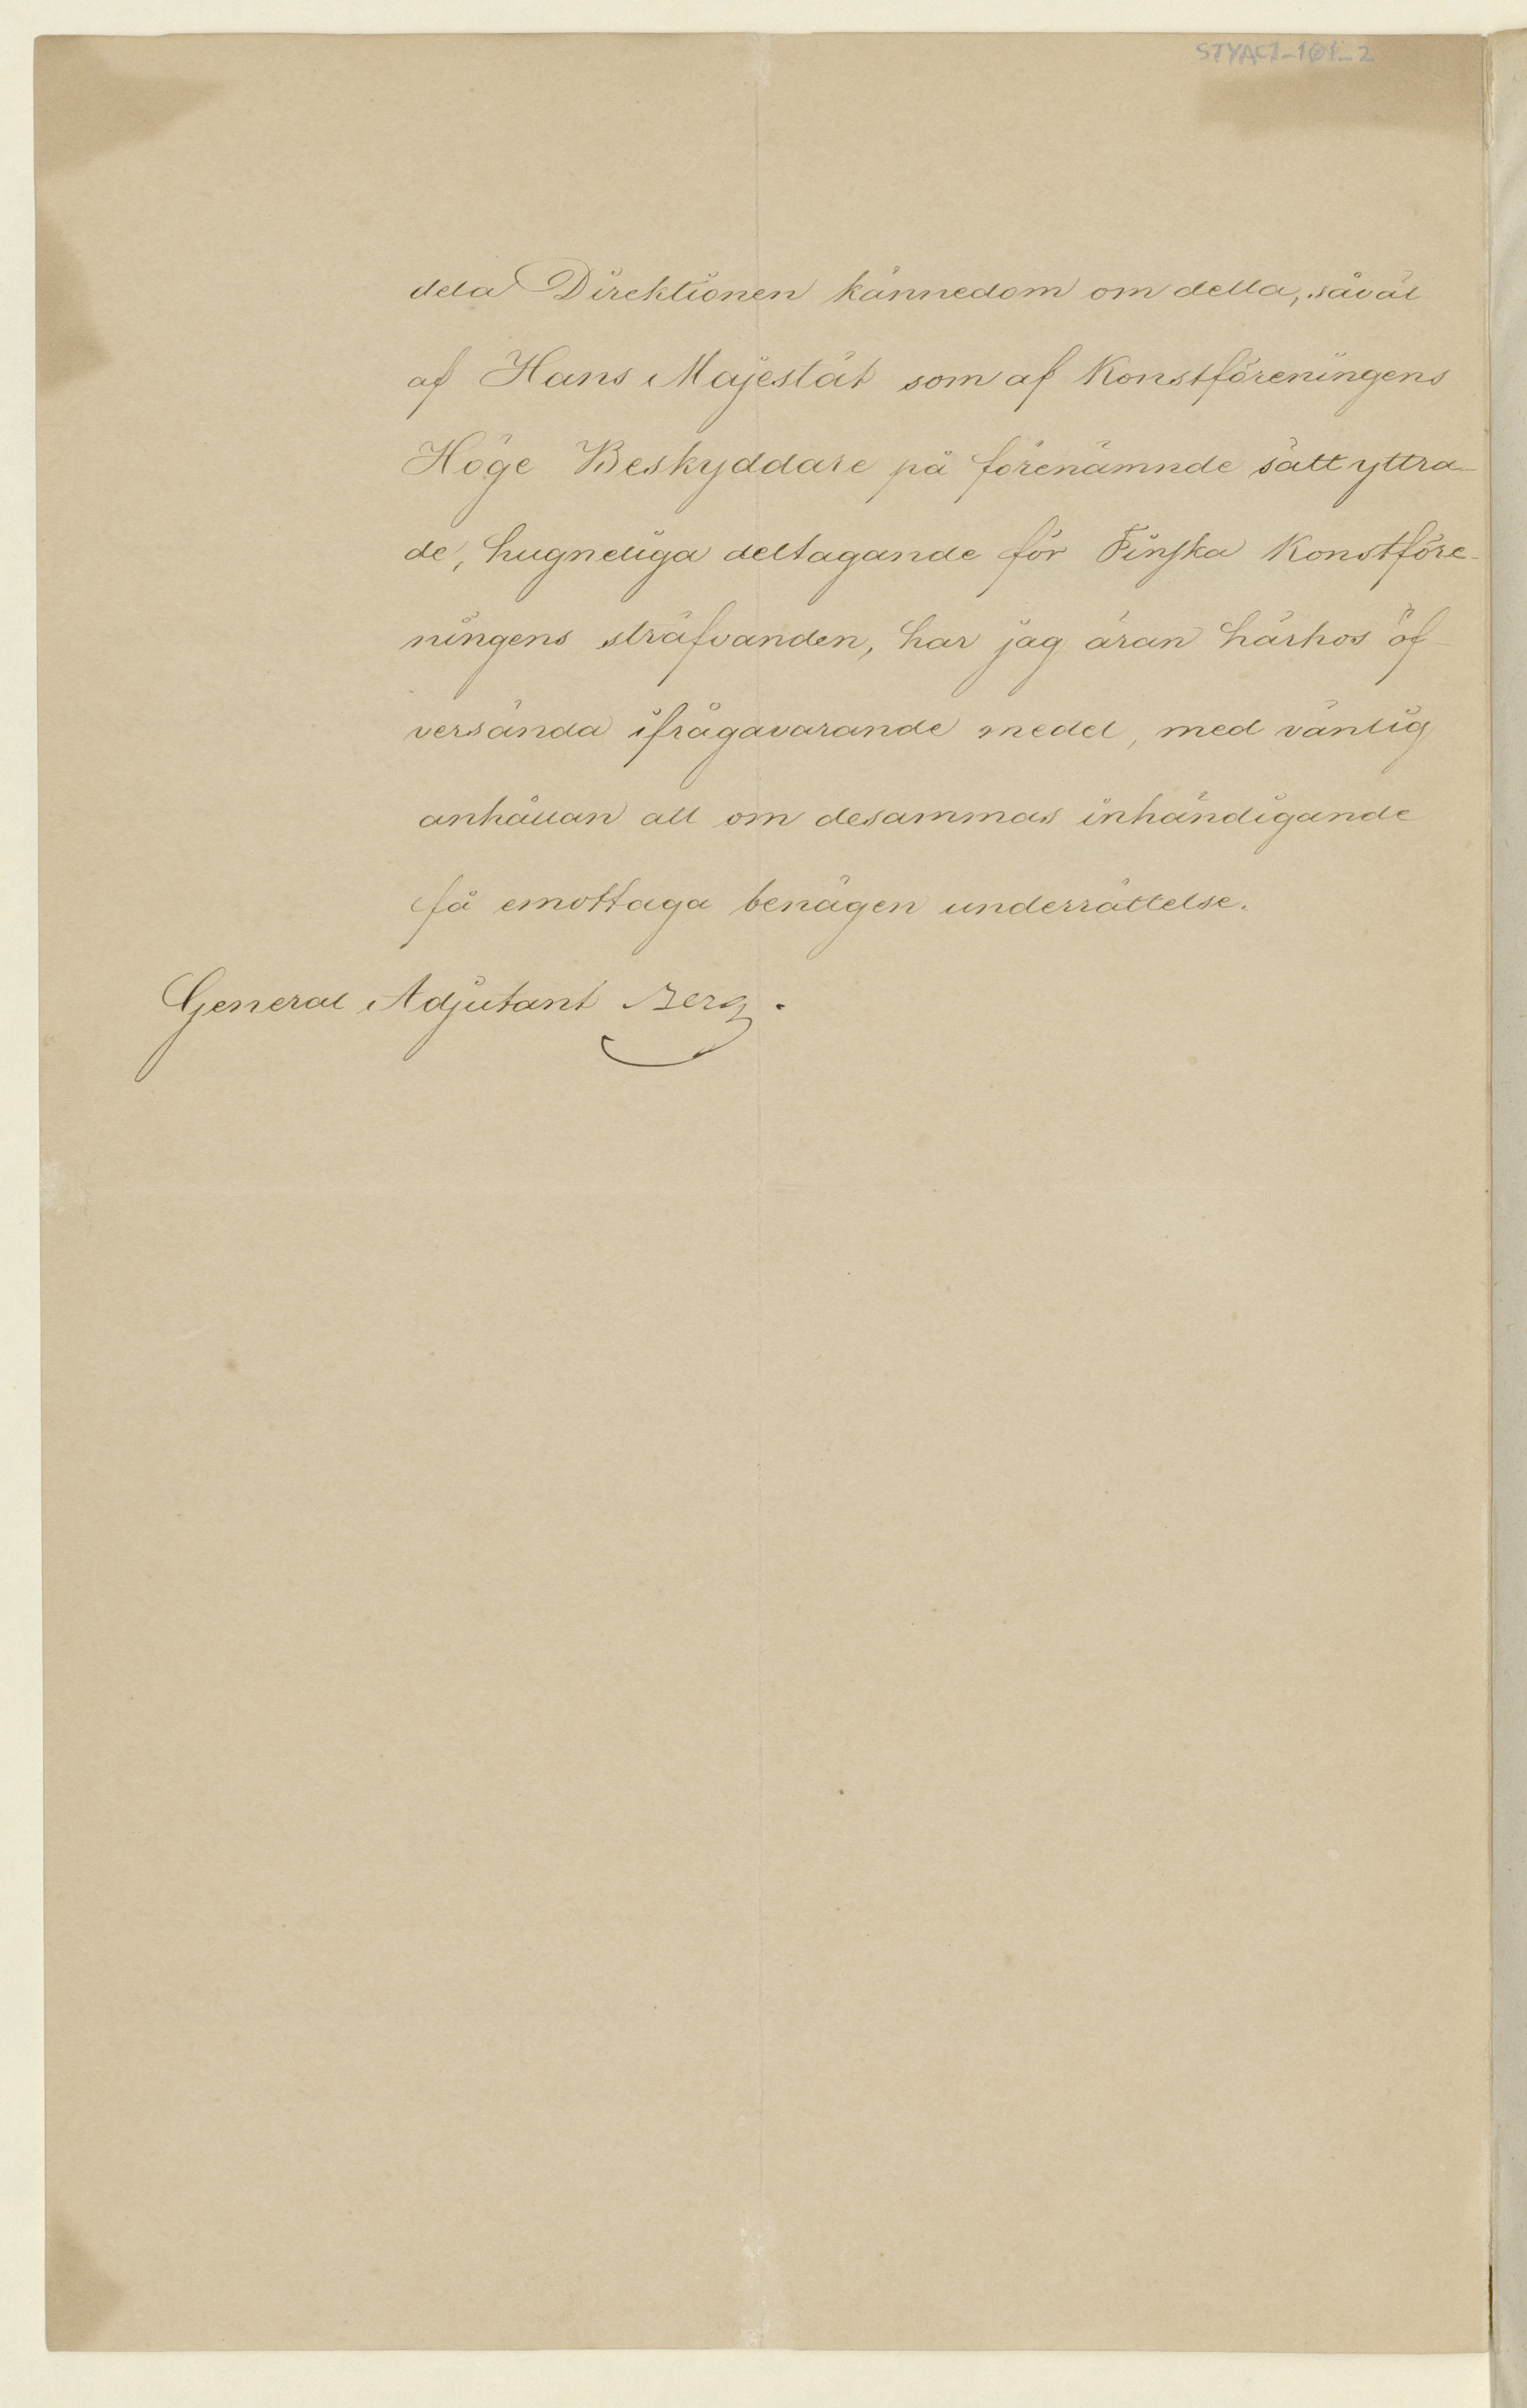 STYAC1_101_2
dela Direktionen kännedom om detta, såväl
af Hans Majestät som af Konstföreningens
Höge Beskyddare på förenämnde sätt yttra-
de, hugneliga deltagande för Finska Konstföre-
ningens sträfvanden, har jag äran härhos öf-
versända ifrågavarande medel, med vänlig
anhållan att om desammas inhändigande
få emottaga benägen underrättelse.
General Adjutant Berg.